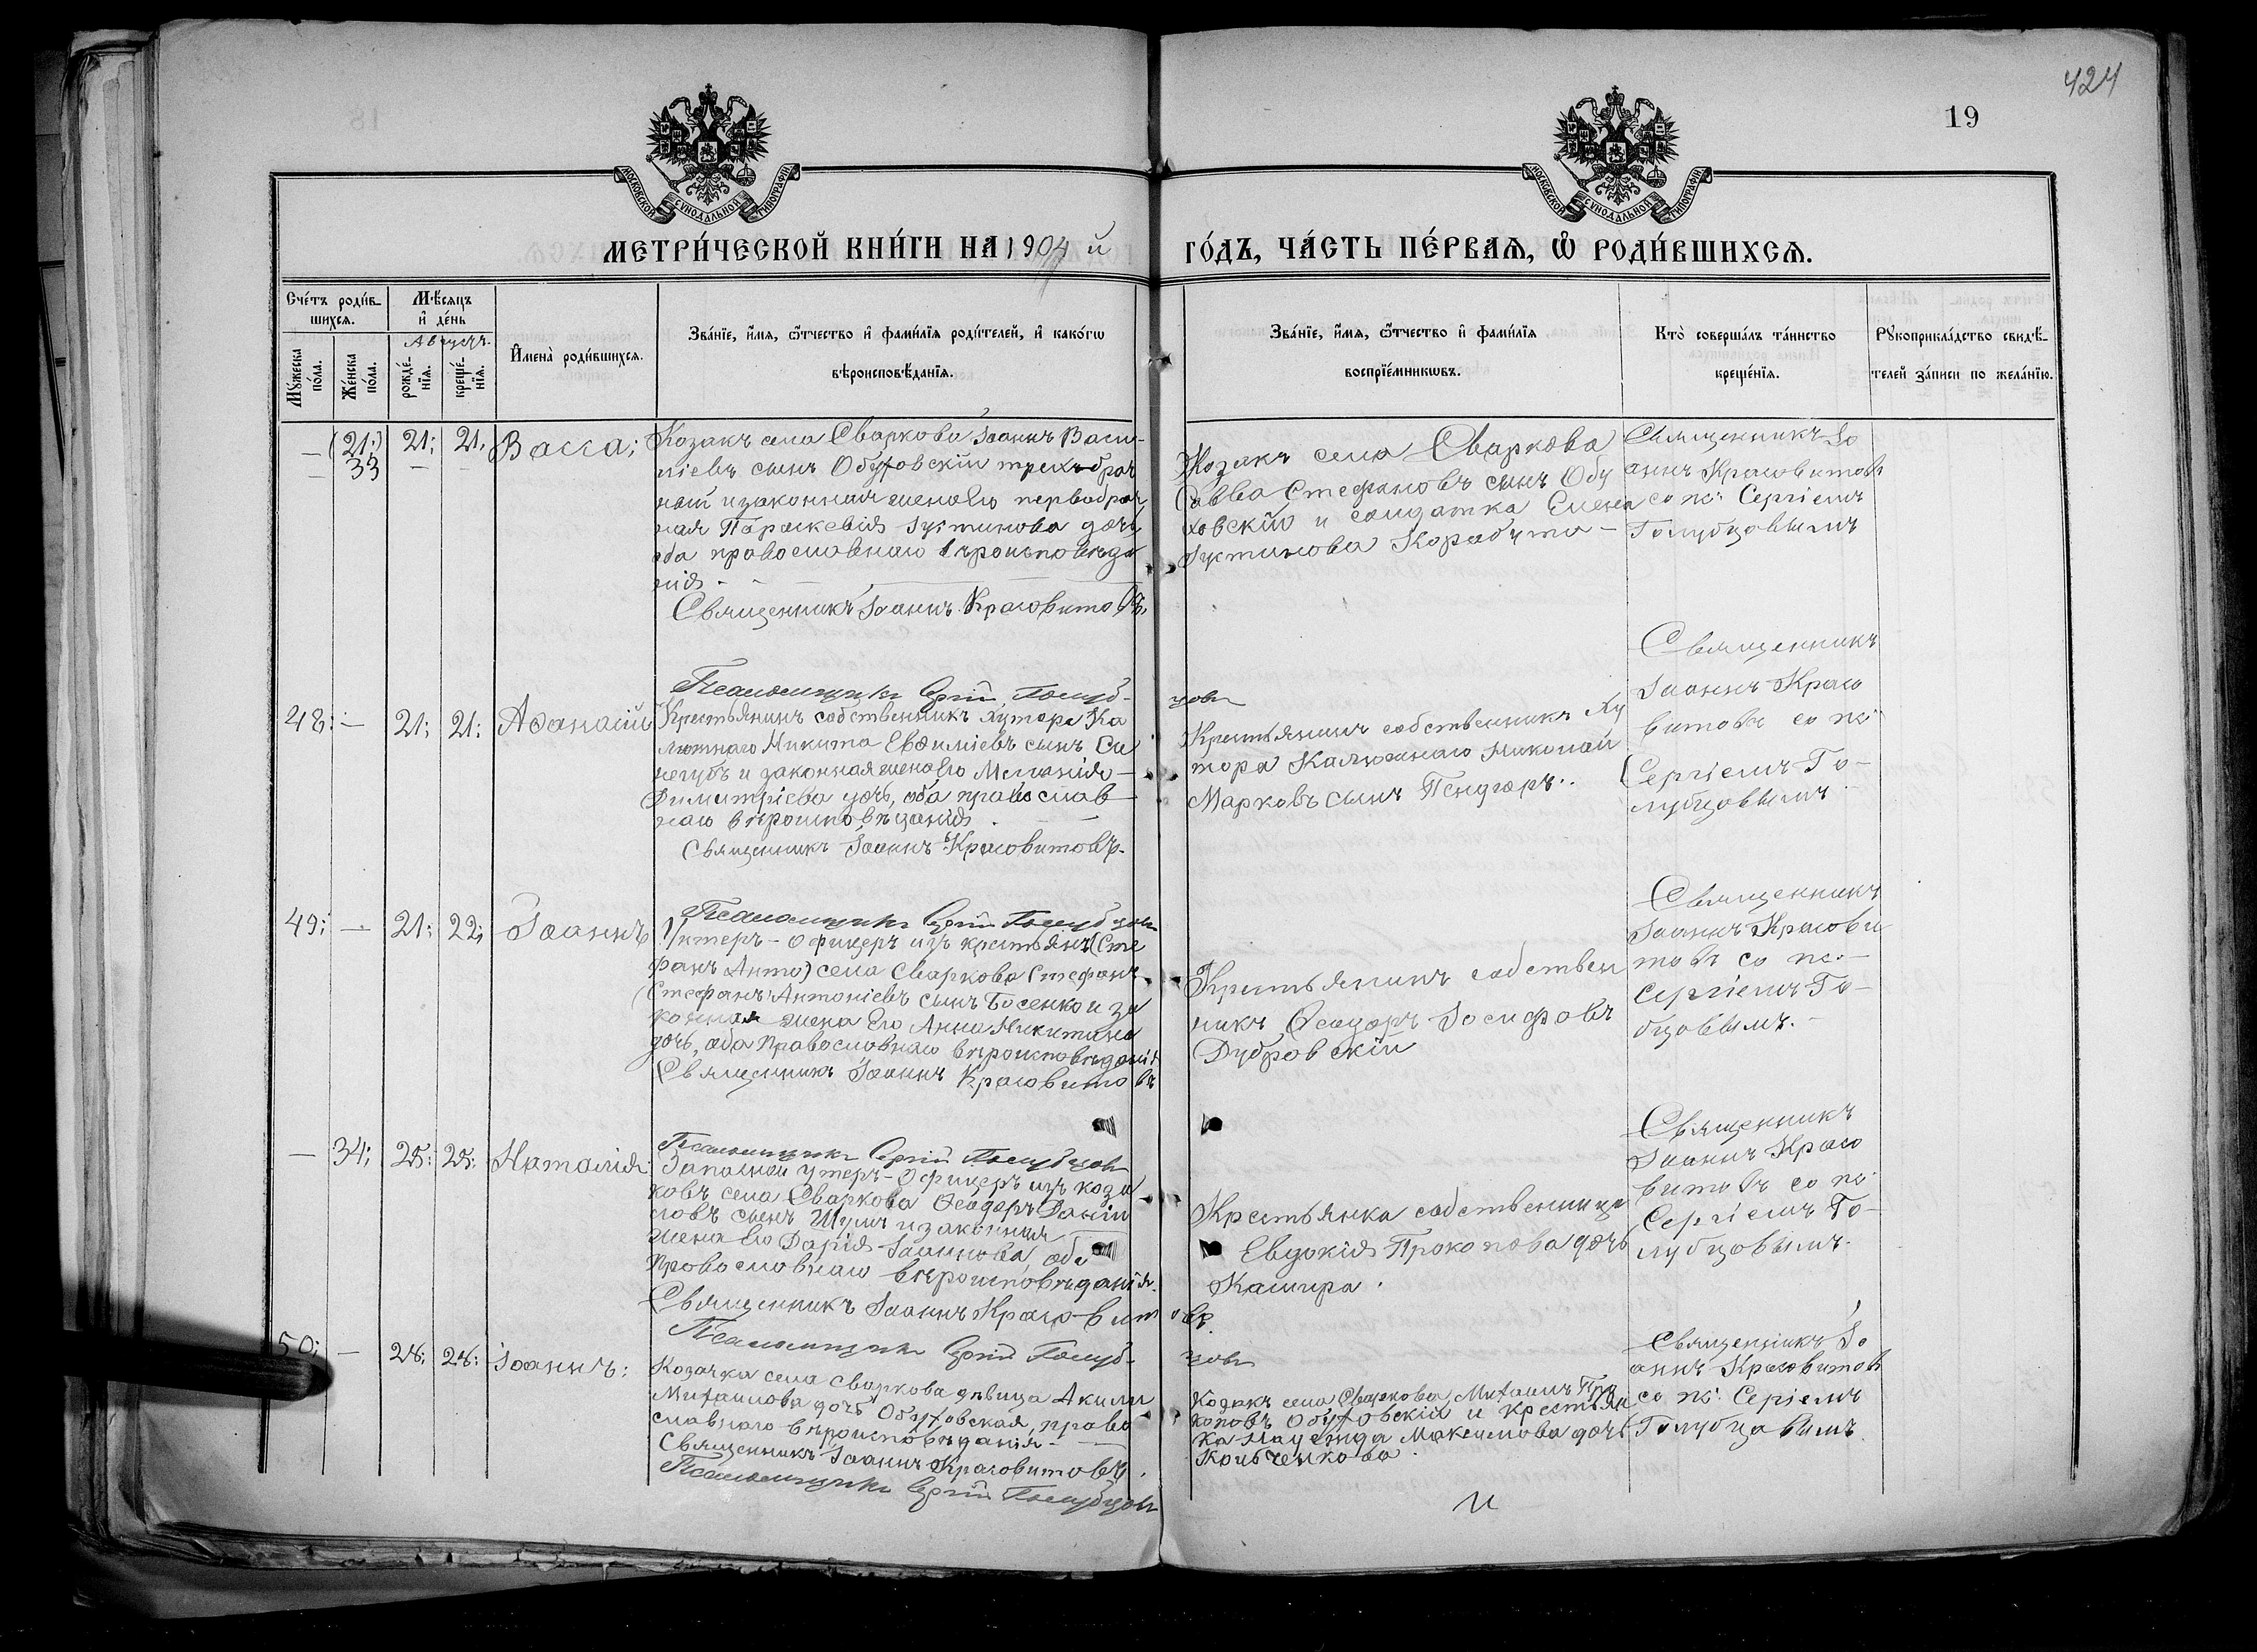 424
19
МОСКОВСКОЙ СѴНОДАЛЬНОЙ ТИПОГРАФІИ
МОСКОВСКОЙ СѴНОДАЛЬНОЙ ТИПОГРАФІИ
МЕТРИ́ЧЕСКОЙ КНИ́ГИ НА 1904 й
ГО́ДЪ, ЧА́СТЬ ПЕ́РВАѦ, Ѽ РОДИ́ВШИХСѦ.
Сче́тъ роди́в-
шихсѧ.
Мѣ́сѧцъ
и҆ де́нь
Августъ.
Мꙋ́жеска по́ла.
Же́нска по́ла.
рожде́-нїѧ.
креще́-нїѧ.
И҆мена̀ роди́вшихсѧ.
Зва́нїе, и҆́мѧ, ѻ҆́тчество и҆ фами́лїѧ роди́телей, и҆ како́гѡ
вѣроисповѣ́данїѧ.
Зва́нїе, и҆́мѧ, ѻ҆́тчество и҆ фами́лїѧ
воспрїе́мникѡвъ.
Кто̀ соверша́лъ та́инство
креще́нїѧ.
Рꙋкоприкла́дство свидѣ́-
телей за́писи по жела́нїю.
— (21;) 21; 21. Васса;
— 33 — —
Козакъ села Сваркова Іоаннъ Васи-
ліевъ сынъ Обуховскій трехъ-брач
ный и законная жена его первобрач
ная Параскевія Іустинова дочь
оба православнаго вѣроисповѣда
нія.
Священникъ Іоаннъ Красовитовъ.
Псаломщикъ Сергій Голуб-
цовъ
Козакъ села Сваркова
Савва Стефановъ сынъ Обу
ховскій и солдатка Елена
Іустинова Корабута —
Священникъ Іо
аннъ Красовитовъ
со пс. Сергіемъ
Голубцовымъ
48; — 21; 21; Аѳанасій
Крестьянинъ собственникъ хутора Ка
люжнаго Никита Евѳиміевъ сынъ Си
негубъ и законная жена его Меланія
Димитріева дочь, оба православ
наго вѣроисповѣданія.
Священникъ Іоаннъ Красовитовъ.
Псаломщикъ Сергій Голубцовъ
Крестьянинъ собственникъ ху
тора Калюжнаго Николай
Марковъ сынъ
Священникъ
Іоаннъ Красо
витовъ со пс
Сергіемъ Го-
лубцовымъ
49; — 21; 22; Іоаннъ
Унтеръ-офицеръ изъ крестьянъ (Сте
фанъ Анто) села Сваркова Стефанъ
Стефанъ Антоніевъ сынъ Босенко и за
конная жена его Анна Никитина
дочь, оба православнаго вѣроисповѣданія
Священникъ Іоаннъ Красовитовъ
Псаломщикъ Сергій Голубцовъ
Крестьянинъ собствен
никъ Ѳеодоръ Іосифовъ
Дубровскій
Священникъ
Іоаннъ Красови
товъ со пс. —
Сергіемъ Го-
бцовымъ. —
— 34; 25; 25; Наталія
Запасной унтеръ-офицеръ изъ коза
ковъ села Сваркова Ѳеодоръ Даніи
ловъ сынъ и законная
жена его Дарія Іоаннова, оба
православнаго вѣроисповѣданія.
Священникъ Іоаннъ Красовитовъ.
Псаломщикъ Сергій Голуб-
цовъ
Крестьянка собственница
Евдокія Прокопова дочь
Кашира.
Священникъ
Іоаннъ Красо
витовъ со пс
Сергіемъ Го-
лубцовымъ.
50; — 28; 28; Іоаннъ;
Козачка села Сваркова дѣвица Акили
Михаилова дочь Обуховская, право
славнаго вѣроисповѣданія —
Священникъ Іоаннъ Красовитовъ.
Псаломщикъ Сергій Голубцовъ
Козакъ села Сваркова Михаилъ Про
коповъ Обуховскій и крестьян
ка Надежда Максимова дочь
Священникъ Іо
аннъ Красовитовъ
со пс. Сергіемъ
Голубцовымъ.